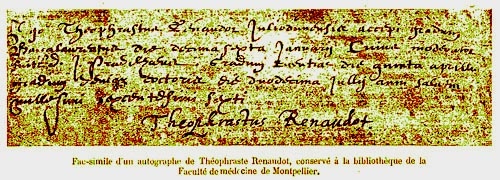 Ego Theophrastus Renaudot Juliodunensis accepi gradum
Baccalaureatus die decima septa Januarij Cuius moderator
Gradum die quinta aprilis
gradum doctoris die duodecima Julij anni
millesimi
Theophrastus Renaudot
Fac-simile d'un autographe de Théophraste Renaudot, conservé à la bibliothèque de la
Faculté de médecine de Montpellier.